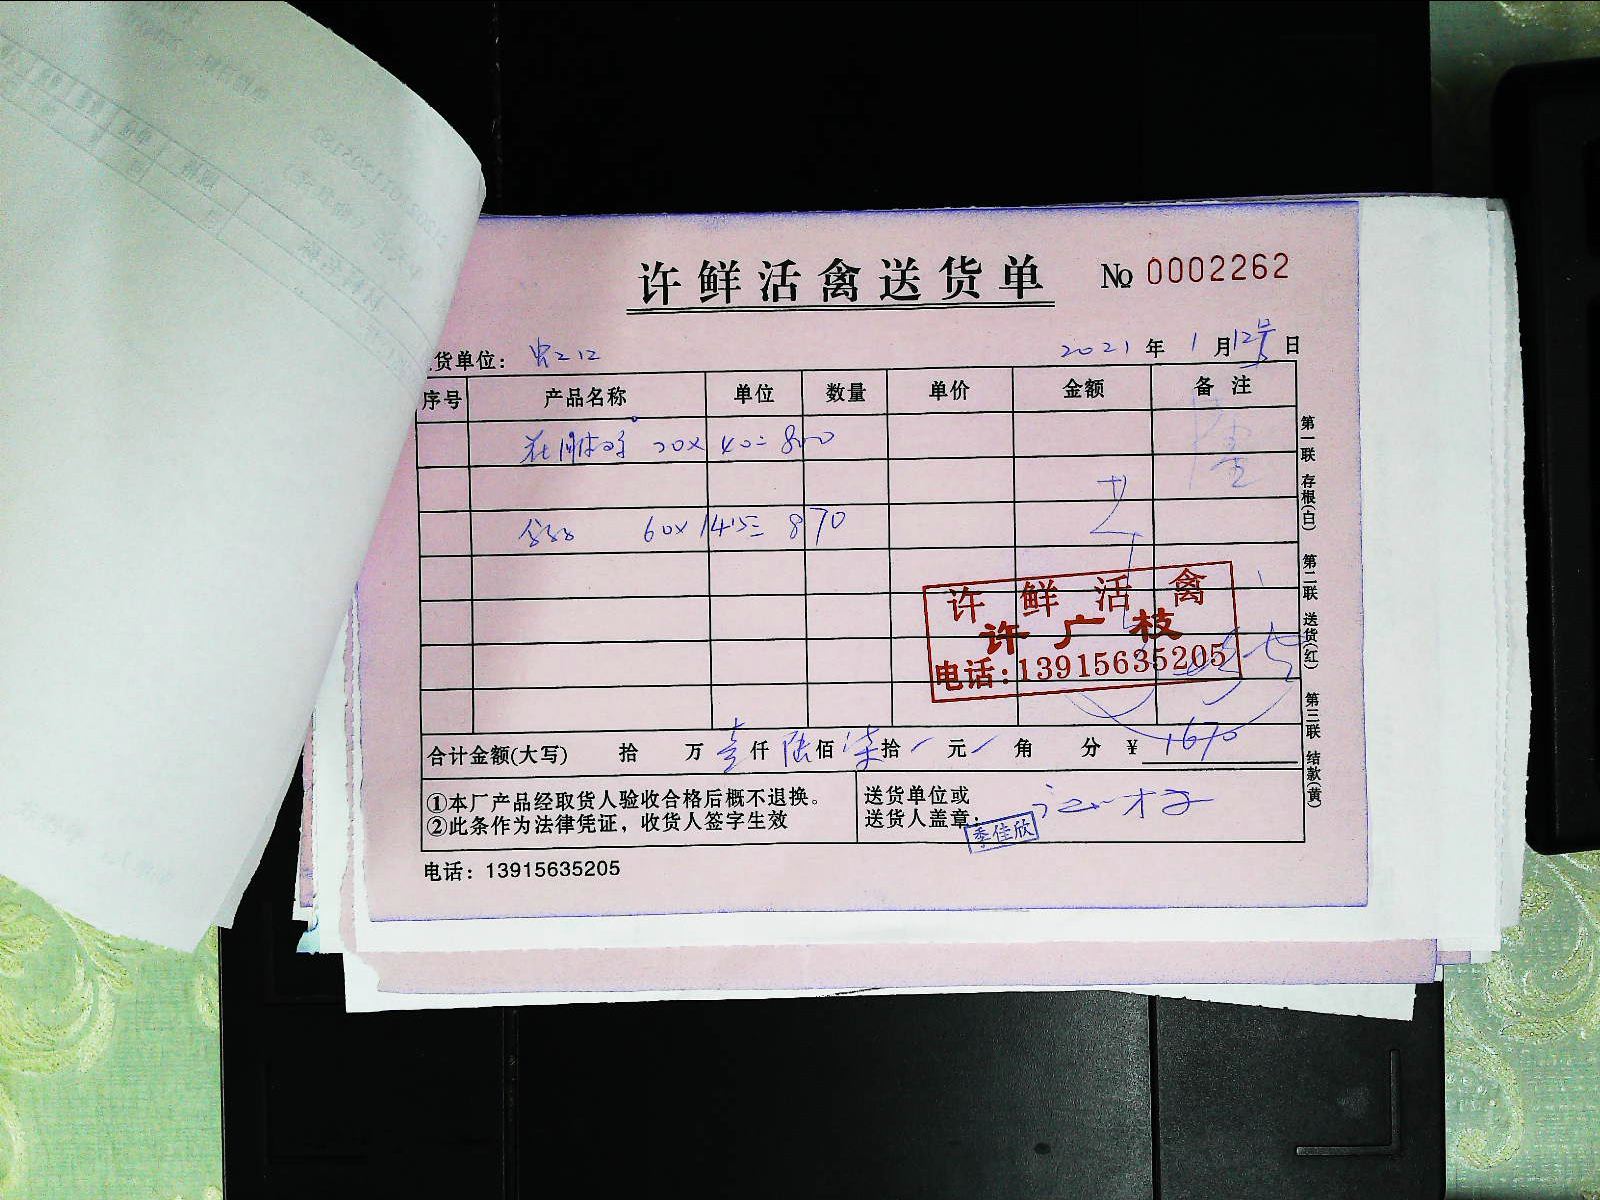 许鲜活禽送货单 № 0002262
货单位：
2021 年 1 月 12号 日
序号 产品名称 单位 数量 单价 金额 备注
20× 40= 800
60× 14.5= 870
第一联 存根(白) 第二联 送货(红) 第三联 结款(黄)
许鲜活禽
许广枝
电话:13915635205
合计金额(大写) 拾 万 壹 仟 陆 佰 柒 拾 元 角 分 ¥ 1670
①本厂产品经取货人验收合格后概不退换。
②此条作为法律凭证，收货人签字生效
送货单位或
送货人盖章：
季佳欣
电话：13915635205